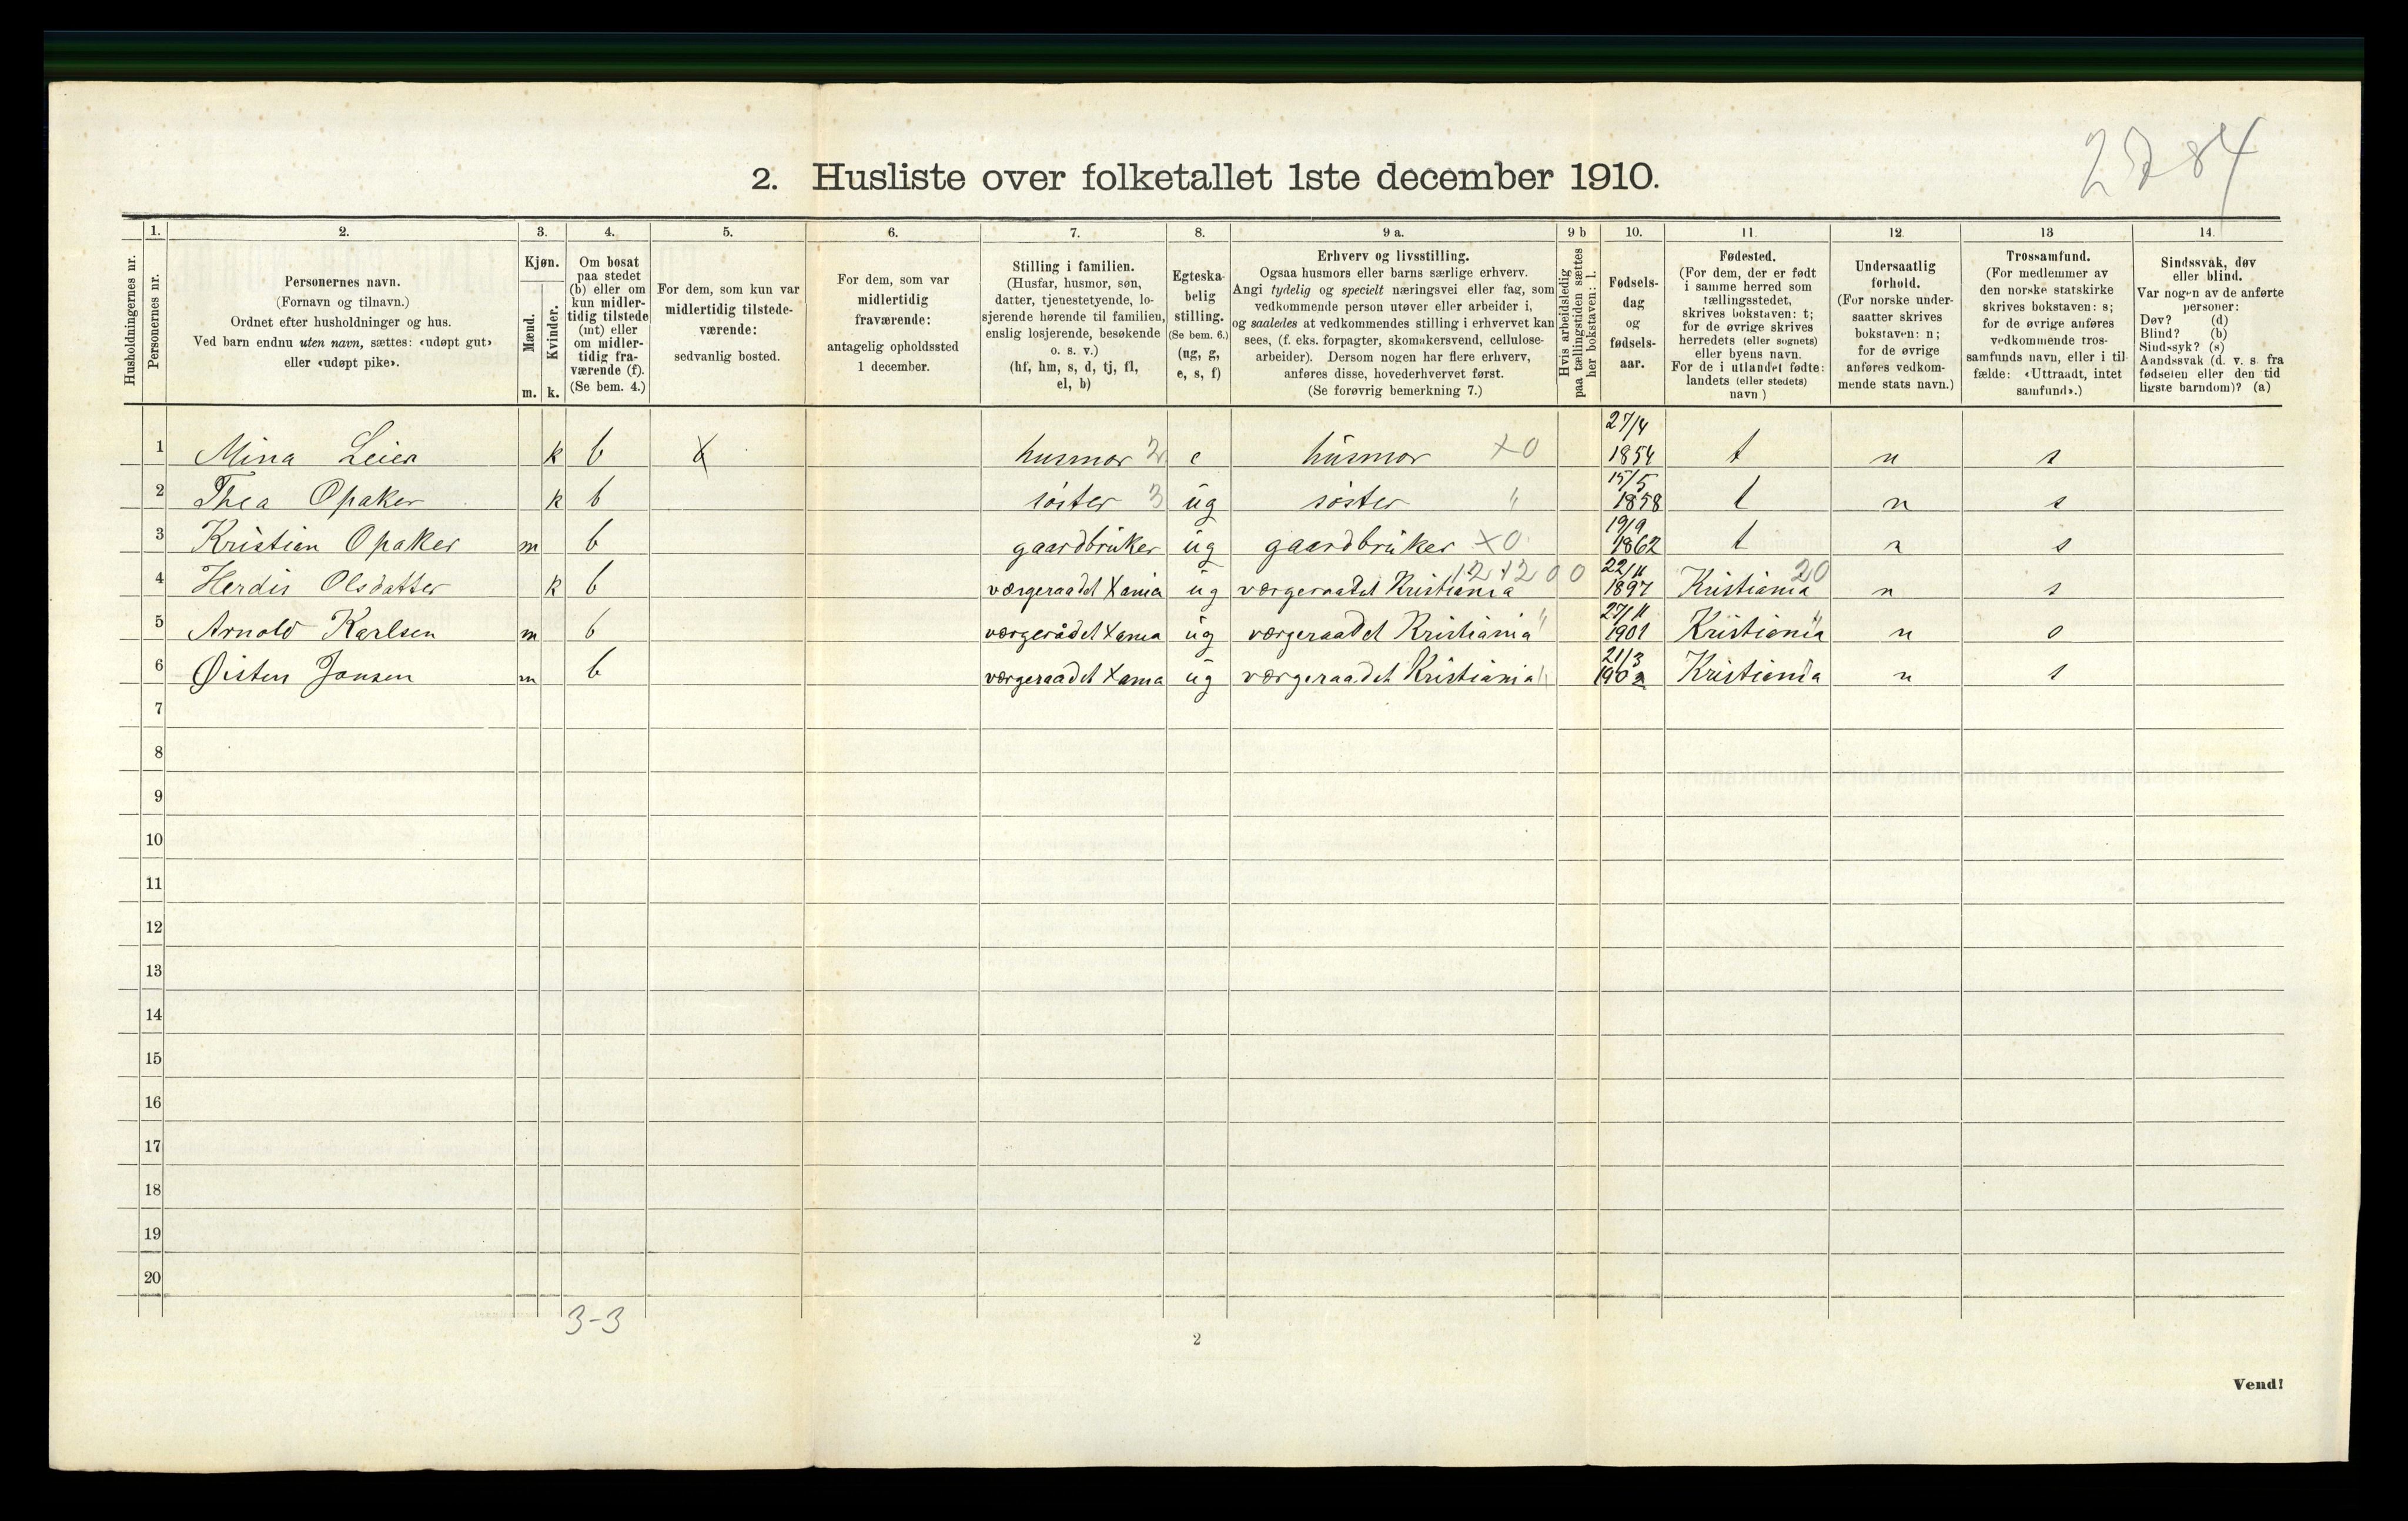 2784
2. Husliste over folketallet 1ste december 1910.
Husholdningernes nr.
1. Personernes nr.
2.
Personernes navn.
(Fornavn og tilnavn.)
Ordnet efter husholdninger og hus.
Ved barn endnu uten navn, sættes: «udøpt gut»
eller «udøpt pike».
3.
Kjøn.
Mænd. Kvinder.
m. k.
4.
Om bosat
paa stedet
(b) eller om
kun midler-
tidig tilstede
(mt) eller
om midler-
tidig fra-
værende (f).
(Se bem. 4.)
5.
For dem, som kun var
midlertidig tilstede-
værende:
sedvanlig bosted.
6.
For dem, som var
midlertidig
fraværende:
antagelig opholdssted
1 december.
7.
Stilling i familien.
(Husfar, husmor, søn,
datter, tjenestetyende, lo-
sjerende hørende til familien,
enslig losjerende, besøkende
o. s. v.)
(hf, hm, s, d, tj, fl,
el, b)
8.
Egteska-
belig
stilling.
(Se bem. 6.)
(ug, g,
e, s, f)
9 a.
Erhverv og livsstilling.
Ogsaa husmors eller barns særlige erhverv.
Angi tydelig og specielt næringsvei eller fag, som
vedkommende person utøver eller arbeider i,
og saaledes at vedkommendes stilling i erhvervet kan
sees, (f. eks. forpagter, skomakersvend, cellulose-
arbeider). Dersom nogen har flere erhverv,
anføres disse, hovederhvervet først.
(Se forøvrig bemerkning 7.)
9 b
Hvis arbeidsledig
paa tællingstiden sættes
her bokstaven: l.
10.
Fødsels-
dag
og
fødsels-
aar.
11.
Fødested.
(For dem, der er født
i samme herred som
tællingsstedet,
skrives bokstaven: t;
for de øvrige skrives
herredets (eller sognets)
eller byens navn.
For de i utlandet fødte:
landets (eller stedets)
navn.)
12.
Undersaatlig
forhold.
(For norske under-
saatter skrives
bokstaven: n;
for de øvrige
anføres vedkom-
mende stats navn.)
13
Trossamfund.
(For medlemmer av
den norske statskirke
skrives bokstaven: s;
for de øvrige anføres
vedkommende tros-
samfunds navn, eller i til-
fælde: «Uttraadt, intet
samfund».)
14.
Sindssvak, døv
eller blind.
Var nogen av de anførte
personer:
Døv? (d)
Blind? (b)
Sindssyk? (s)
Aandssvak (d. v. s. fra
fødselen eller den tid
ligste barndom)? (a)
1 Mina Leier k b husmor 2 e husmor x0 27/4 1854 t n s
2 Thea Opaker k b søster 3 ug søster " 15/5 1858 t n s
3 Kristian Opaker m b gaardbruker ug gaardbruker x0 19/9 1862 t n s
4 Herdis Olsdatter k b værgeraadet Xania ug værgeraadet Kristiania 22/11 1897 Kristiania 20 n s
5 Arnold Karlsen m b værgerådet Xania ug værgeraadet Kristiania " 27/11 1901 Kristiania " n o
6 Øisten Jonsen m b værgeraadet Xania ug værgeraadet Kristiania " 21/3 1902 Kristiania n s
7
8
9
10
11
12
13
14
15
16
17
18
19
20
3-3
2
Vend!